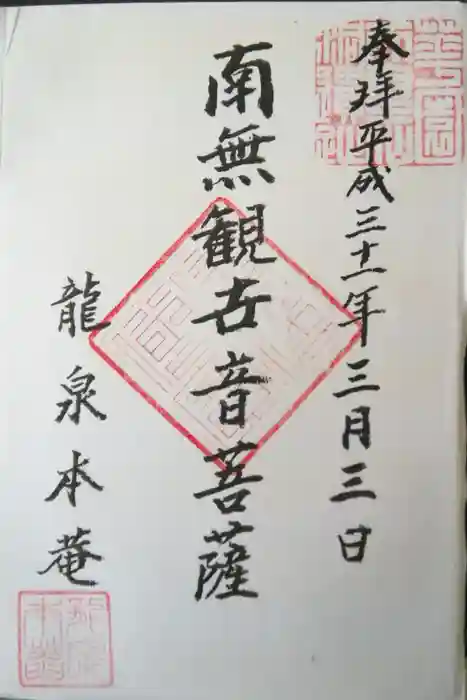 奉拝平成三十一年三月三日
南無観世音菩薩
龍泉本庵